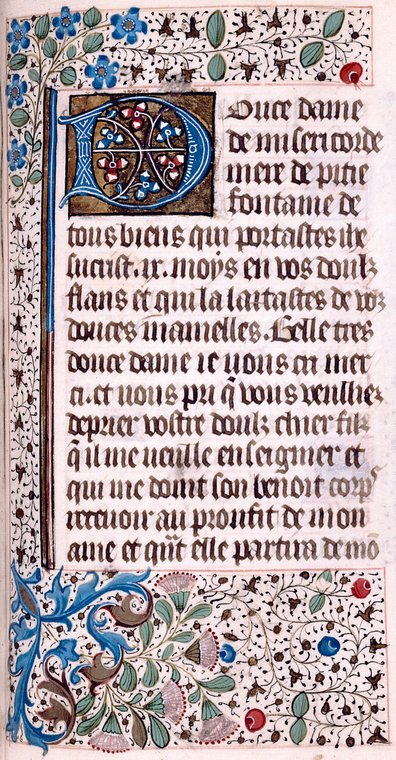 Douce dame
de misericorde
mere de pitie
fontaine de
tous biens qui portastes ihe
sucrist .ix. moys en vos doulz
flans et qui la laitastes de voz
douces mamelles. Belle tres
douce dame ie vous cri mer
ci. et vous pri q̄ vous veulliez
deprier vostre doulz chier filz
q̄ il me veulle enseignier et
qui me doint son benoit corps
recevoir au proufit de mon
ame et qñt elle partira de mō